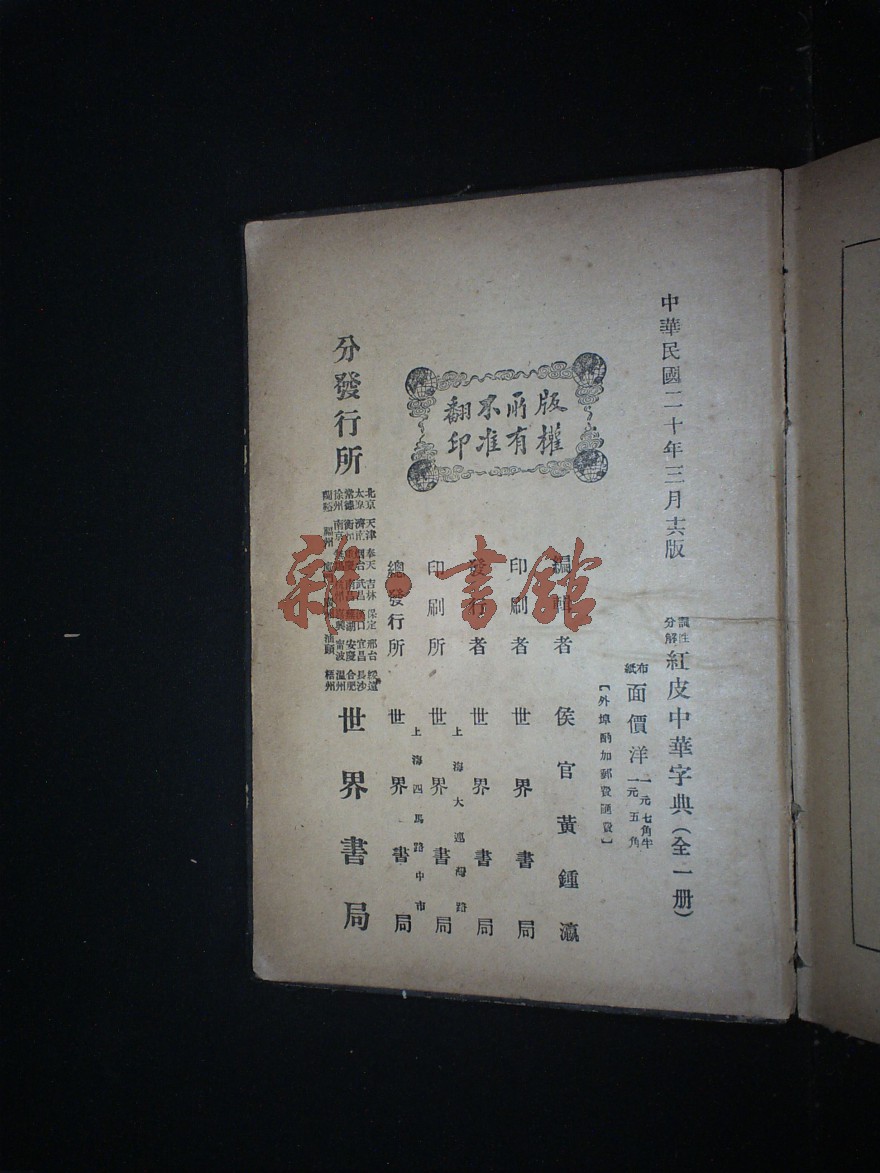 中華民國二十年三月十六版
詞性分解 紅皮中華字典（全一册）
布紙面價洋 二元七角半 一元五角
【外埠酌加郵費匯費】
版權所有
不准翻印
編輯者 侯官黃鍾瀛
印刷者 世界書局
發行者 世界書局
上海大連灣路
印刷所 世界書局
上海四馬路中市
總發行所 世界書局
分發行所
北京 天津 奉天 吉林 保定 邢台 綏遠
太原 濟南 烟台 武昌 漢口 宜昌 長沙
常德 衡州 重慶 南昌 蕪湖 安慶 合肥
徐州 南京 無錫 杭州 嘉興 甯波 溫州
蘭谿 福州 汕頭 梧州
世界書局
書館